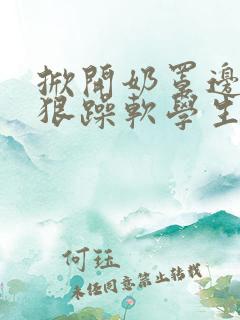 掀開奶罩邊
狠躁軟學生
何珏
未经同意禁止转载